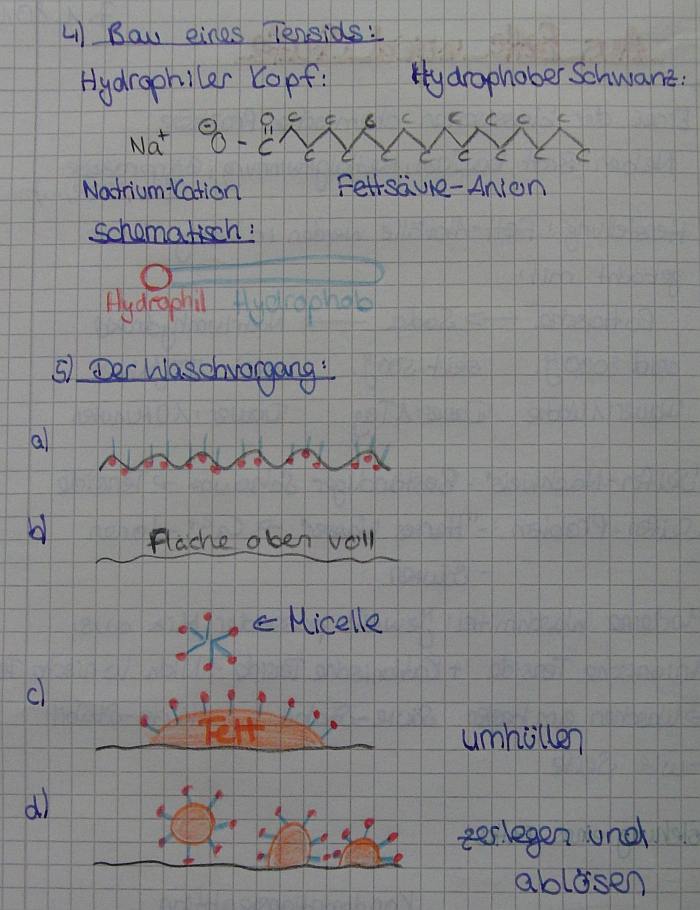 4) Bau eines Tensids:
Hydrophiler Kopf: Hydrophober Schwanz:
O C C C C C C C C
Na⁺ ⊖O - C C C C C C C C C
Natrium-Kation Fettsäure-Anion
schematisch:
Hydrophil Hydrophob
5) Der Waschvorgang:
a)
b) Fläche oben voll
← Micelle
c) Fett umhüllen
d) zerlegen und
ablösen